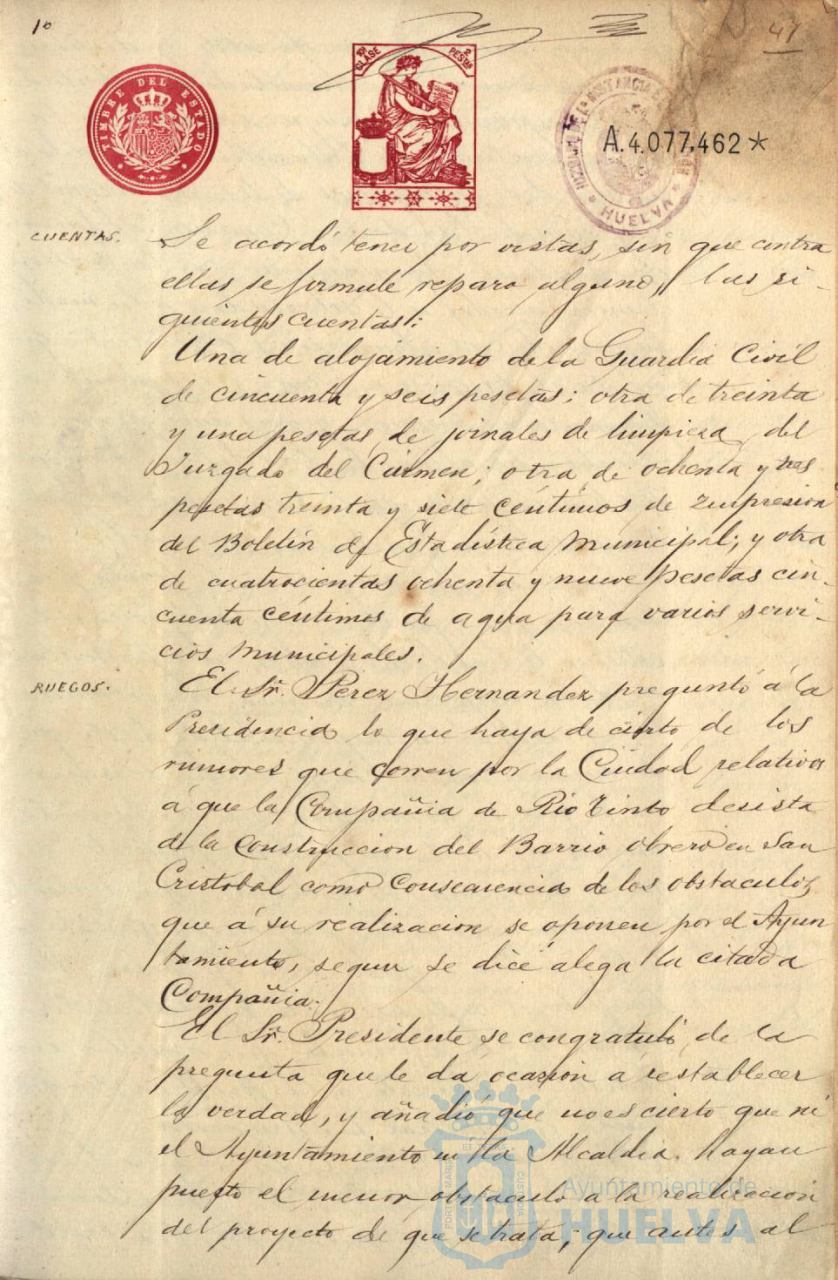 1º
47
TIMBRE DEL ESTADO
10ª CLASE 2 PESTAS
A.4.077.462*
HUELVA
CUENTAS.
Se acordó tener por vistas, sin que contra
ellas se formule reparo alguno, las si-
guientes cuentas:
Una de alojamiento de la Guardia Civil
de cincuenta y seis pesetas; otra de treinta
y una pesetas de jornales de limpieza del
Juzgado del Carmen; otra de ochenta y tres
pesetas treinta y siete céntimos de impresion
del Boletín de Estadística Municipal; y otra
de cuatrocientas ochenta y nueve pesetas cin-
cuenta céntimos de agua para varios servi-
cios Municipales.
RUEGOS.
El Sr. Perez Hernandez preguntó á la
Presidencia lo que haya de cierto de los
rumores que corren por la Ciudad relativos
á que la Compañia de Rio Tinto desista
de la Construccion del Barrio obrero en San
Cristobal como Consecuencia de los obstaculos
que á su realizacion se oponen por el Ayun
tamiento, segun se dice alega la citada
Compañia.
El Sr. Presidente se congratuló de la
pregunta que le dá ocasion á restablecer
la verdad, y añadió que no es cierto que ni
el Ayuntamiento ni la Alcaldia hayan
puesto el menor obstaculo á la realizacion
del proyecto de que se trata; que antes al
Ayuntamiento de
HUELVA